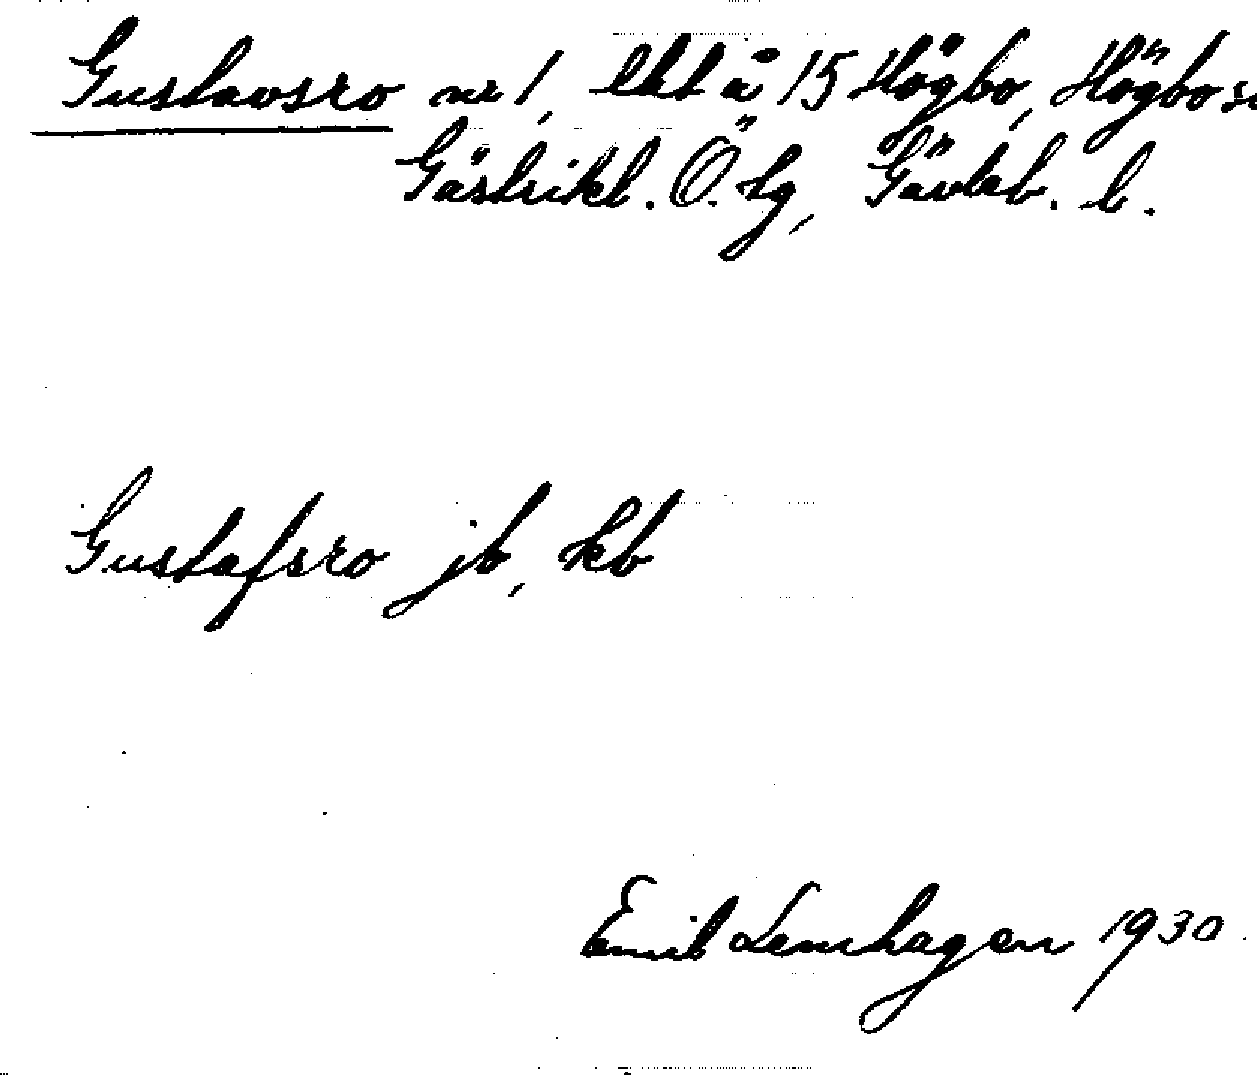 Gustavsro nr 1, lht å 15 Högbo, Högbo s
Gästrikl. Ö. hg, Gävleb. l.
Gustafsro jb, kb
Emil Lenhagen 1930.